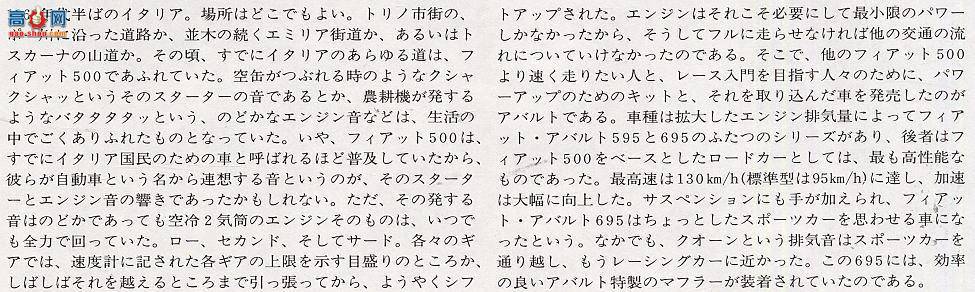 高网
gao-shan.com
年代半ばのイタリア。場所はどこでもよい。トリノ市街の、
沿った道路か、並木の続くエミリア街道か、あるいはト
スカーナの山道か。その頃、すでにイタリアのあらゆる道は、フ
ィアット500であふれていた。空缶がつぶれる時のようなクシャ
クシャッというそのスターターの音であるとか、農耕機が発する
ようなバタタタタッという、のどかなエンジン音などは、生活の
中でごくありふれたものとなっていた。いや、フィアット500は、
すでにイタリア国民のための車と呼ばれるほど普及していたから、
彼らが自動車という名から連想する音というのが、そのスタータ
ーとエンジン音の響きであったかもしれない。ただ、その発する
音はのどかであっても空冷2気筒のエンジンそのものは、いつで
も全力で回っていた。ロー、セカンド、そしてサード。各々のギ
アでは、速度計に記された各ギアの上限を示す目盛りのところか、
しばしばそれを越えるところまで引っ張ってから、ようやくシフ
トアップされた。エンジンはそれこそ必要にして最小限のパワー
しかなかったから、そうしてフルに走らせなければ他の交通の流
れについていけなかったのである。そこで、他のフィアット500
より速く走りたい人と、レース入門を目指す人々のために、パワ
ーアップのためのキットと、それを取り込んだ車を発売したのが
アバルトである。車種は拡大したエンジン排気量によってフィア
ット・アバルト595と695のふたつのシリーズがあり、後者はフ
ィアット500をベースとしたロードカーとしては、最も高性能な
ものであった。最高速は130km/h(標準型は95km/h)に達し、加速
は大幅に向上した。サスペンションにも手が加えられ、フィアッ
ト・アバルト695はちょっとしたスポーツカーを思わせる車にな
ったという。なかでも、クオーンという排気音はスポーツカーを
通り越し、もうレーシングカーに近かった。この695には、効率
の良いアバルト特製のマフラーが装着されていたのである。